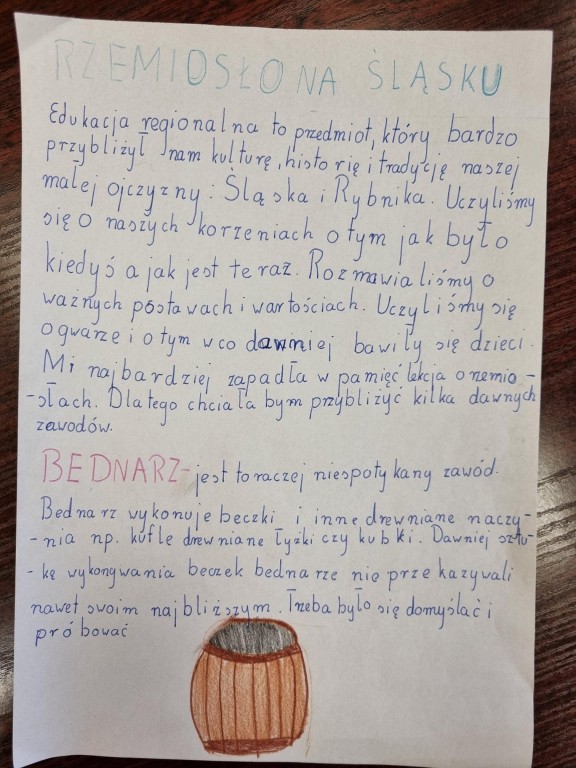 RZEMIOSŁO NA ŚLĄSKU
Edukacja regionalna to przedmiot, który bardzo
przybliżył nam kulturę, historię i tradycję naszej
małej ojczyzny: Śląska i Rybnika. Uczyliśmy
się o naszych korzeniach o tym jak było
kiedyś a jak jest teraz. Rozmawialiśmy o
ważnych postawach i wartościach. Uczyliśmy się
o gwarze i o tym w co dawniej bawiły się dzieci.
Mi najbardziej zapadła w pamięć lekcja o rzemio-
-słach. Dlatego chciałabym przybliżyć kilka dawnych
zawodów.
BEDNARZ- jest to raczej niespotykany zawód.
Bednarz wykonuje beczki i inne drewniane naczy-
-nia np. kufle drewniane łyżki czy kubki. Dawniej sztu-
-kę wykonywania beczek bednarze nie przekazywali
nawet swoim najbliższym. Trzeba było się domyślać i
próbować